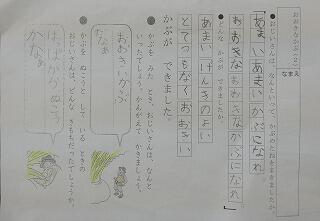 おおきなかぶ(2)
なまえ
●おじいさんは、なんといって、かぶのたねをまきましたか。
「あまいあまいかぶになれ
おおきなおおきなかぶになれ」
●どんな かぶが できましたか。
あまいげんきのよい
とてつもなくおおきい
かぶが できました。
●かぶを みた とき、おじいさんは、なんと
いったでしょう。かんがえて かきましょう。
おおきいかぶ
だなあ
●かぶを ぬこうと して いる ときの
おじいさんは、どんな きもちだったでしょうか。
ぬこう
かなあ